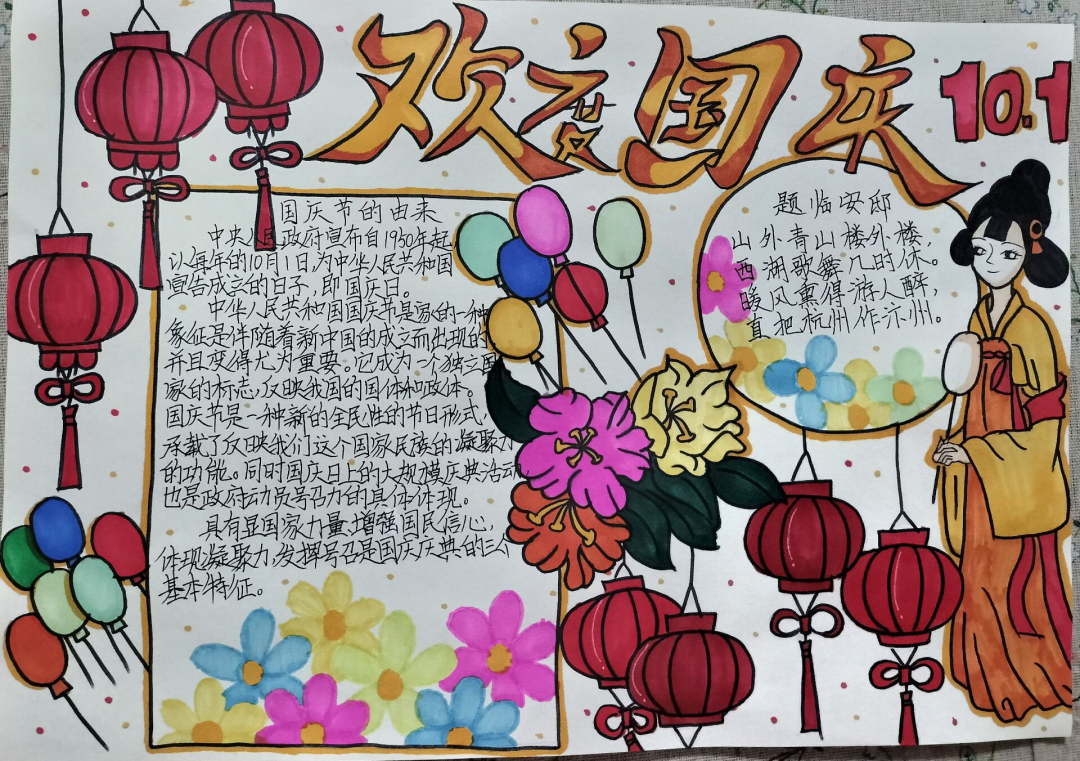 欢度国庆
10.1
国庆节的由来
中央人民政府宣布自1950年起,
以每年的10月1日,为中华人民共和国
宣告成立的日子,即国庆日。
中华人民共和国国庆节是国家的一种
象征是伴随着新中国的成立而出现的
并且变得尤为重要。它成为一个独立国
家的标志,反映我国的国体和政体。
国庆节是一种新的全民性的节日形式,
承载了反映我们这个国家民族的凝聚力
的功能。同时国庆日上的大规模庆典活动
也是政府动员号召力的具体体现。
具有显国家力量,增强国民信心,
体现凝聚力,发挥号召是国庆庆典的三个
基本特征。
题临安邸
山外青山楼外楼,
西湖歌舞几时休。
暖风熏得游人醉,
直把杭州作汴州。